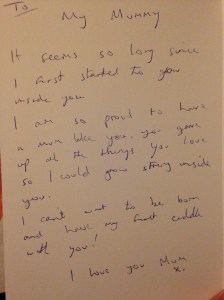 To
My Mummy
It seems so long since
I first started to grow
inside you.
I am so proud to have
a mum like you. you gave
up all the things you love
so I could grow strong inside
you.
I can't wait to be born
and have my first cuddle
with you!
I love you Mum
x.